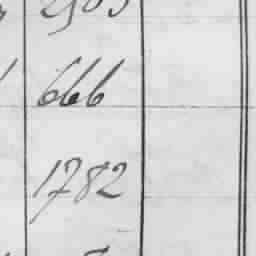 666
1782